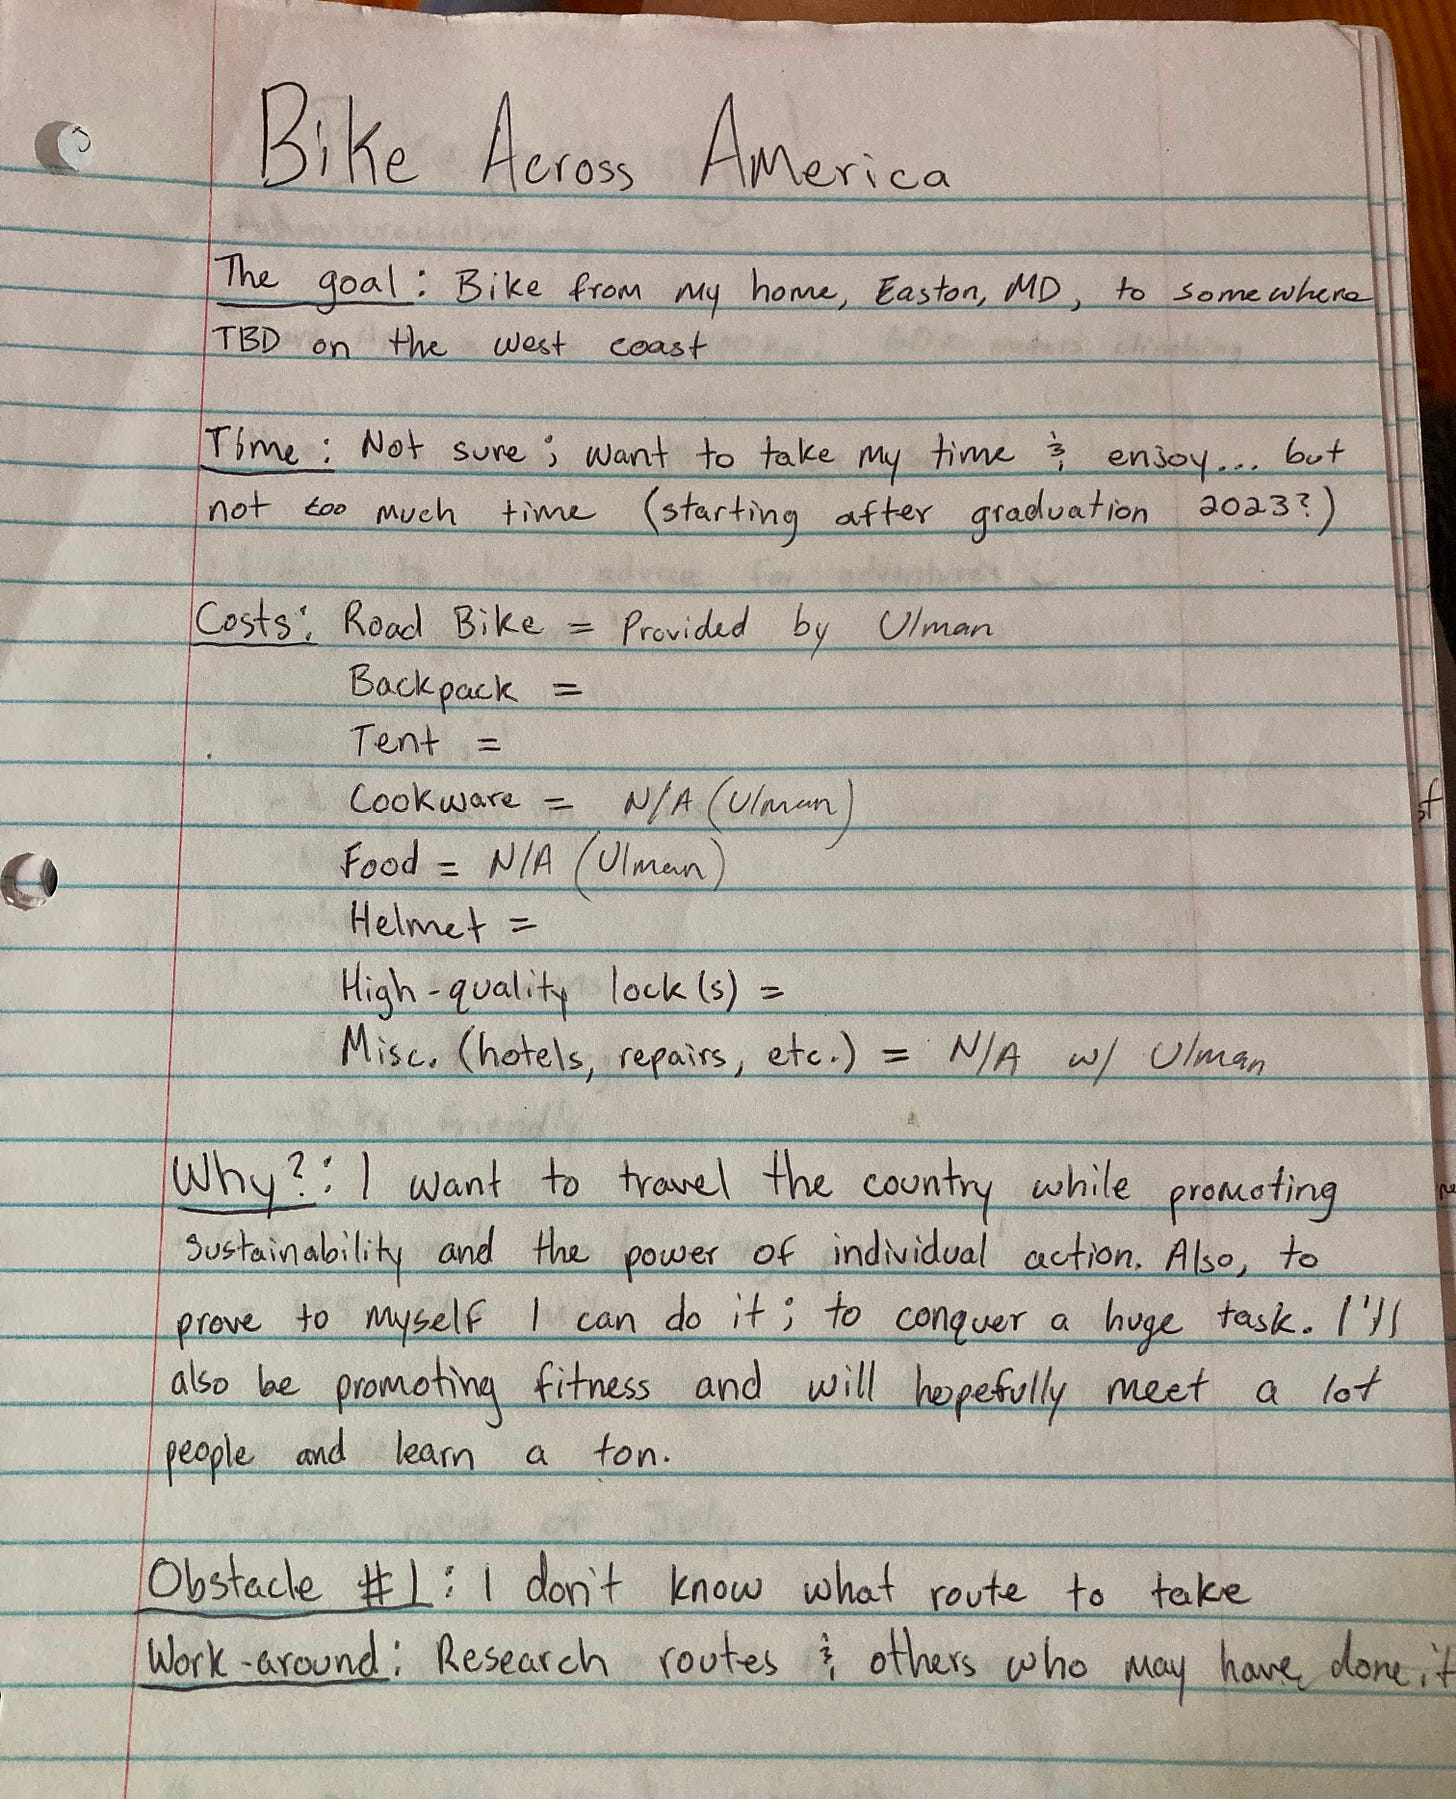 Bike Across America
The goal: Bike from my home, Easton, MD, to somewhere
TBD on the west coast
Time: Not sure; want to take my time & enjoy... but
not too much time (starting after graduation 2023?)
Costs: Road Bike = Provided by Ulman
Backpack =
Tent =
Cookware = N/A (Ulman)
Food = N/A (Ulman)
Helmet =
High-quality lock(s) =
Misc. (hotels, repairs, etc.) = N/A w/ Ulman
Why?: I want to travel the country while promoting
sustainability and the power of individual action. Also, to
prove to myself I can do it; to conquer a huge task. I'll
also be promoting fitness and will hopefully meet a lot
people and learn a ton.
Obstacle #1: I don't know what route to take
Work-around: Research routes & others who may have done it